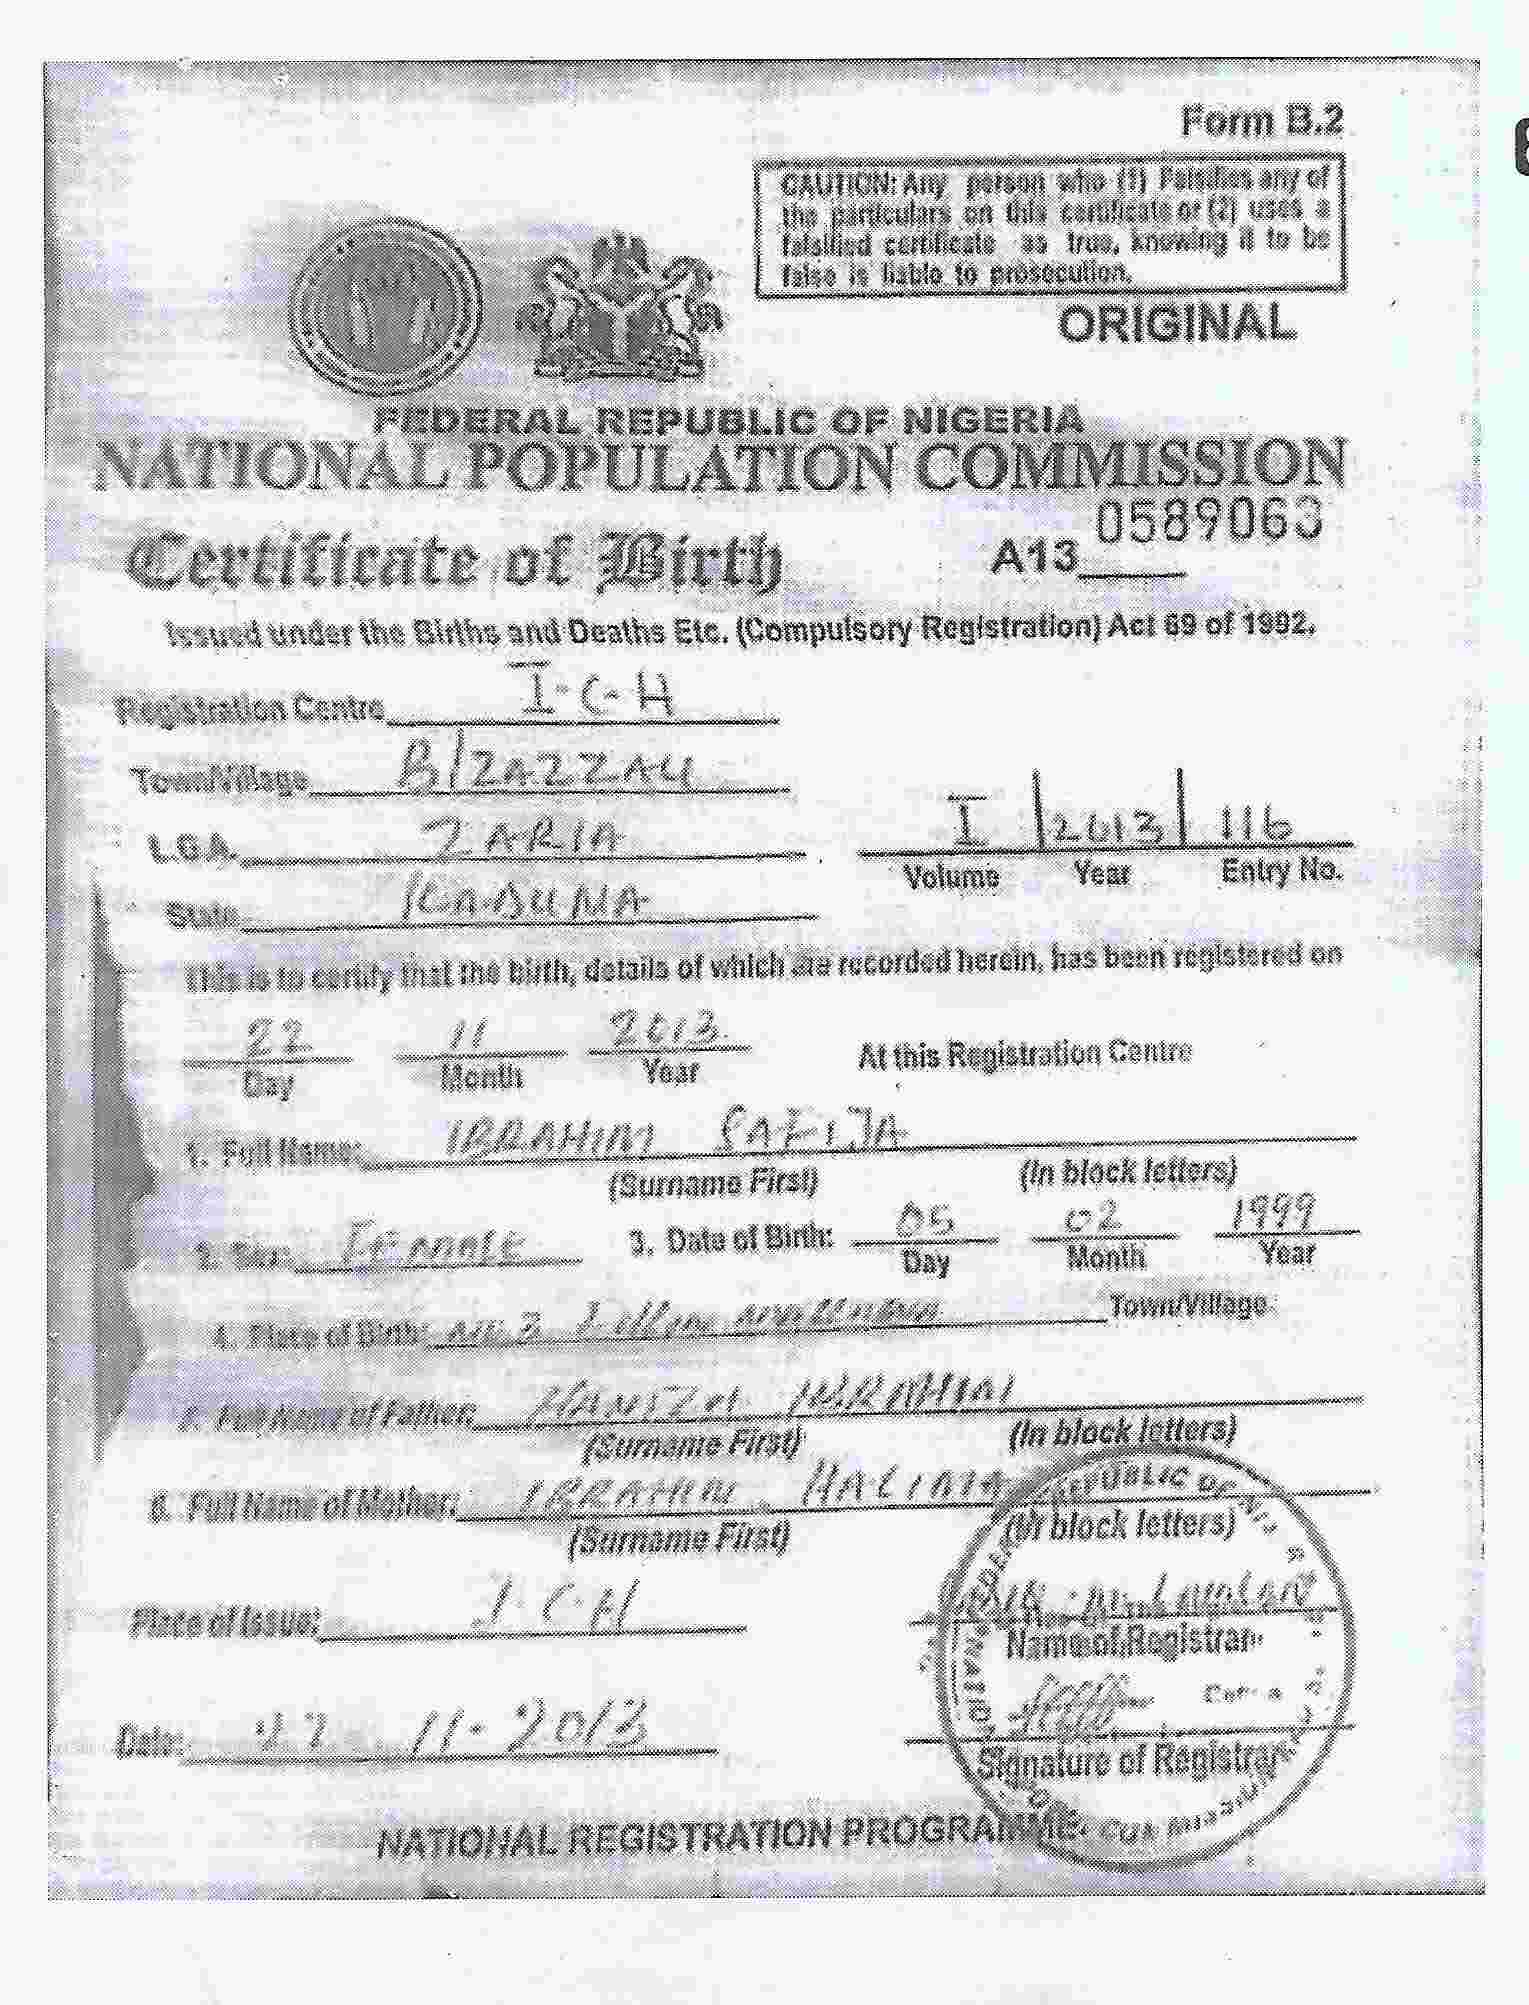 Form B.2
CAUTION: Any person who (1) Falsifies any of
the particulars on this certificate or (2) uses a
falsified certificate as true, knowing it to be
false is liable to prosecution.
ORIGINAL
FEDERAL REPUBLIC OF NIGERIA
NATIONAL POPULATION COMMISSION
Certificate of Birth A13 0589063
Issued under the Births and Deaths Etc. (Compulsory Registration) Act 69 of 1992.
Registration Centre I-C-H
Town/Village B/ZAZZAU
L.G.A. ZARIA
I 2013 116
Volume Year Entry No.
State KADUNA
This is to certify that the birth, details of which are recorded herein, has been registered on
22 11 2013 At this Registration Centre
Day Month Year
1. Full Name: IBRAHIM SAFIJA
(Surname First) (In block letters)
2. Sex: FEMALE 3. Date of Birth: 05 02 1999
Day Month Year
4. Place of Birth: 3 Town/Village
5. Full Name of Father: HAMZA IBRAHIM
(Surname First) (In block letters)
6. Full Name of Mother: IBRAHIM HALIMA
(Surname First) (In block letters)
Place of Issue: I-C-H
Name of Registrar
Date: 22 11-2013
Signature of Registrar
NATIONAL REGISTRATION PROGRAMME